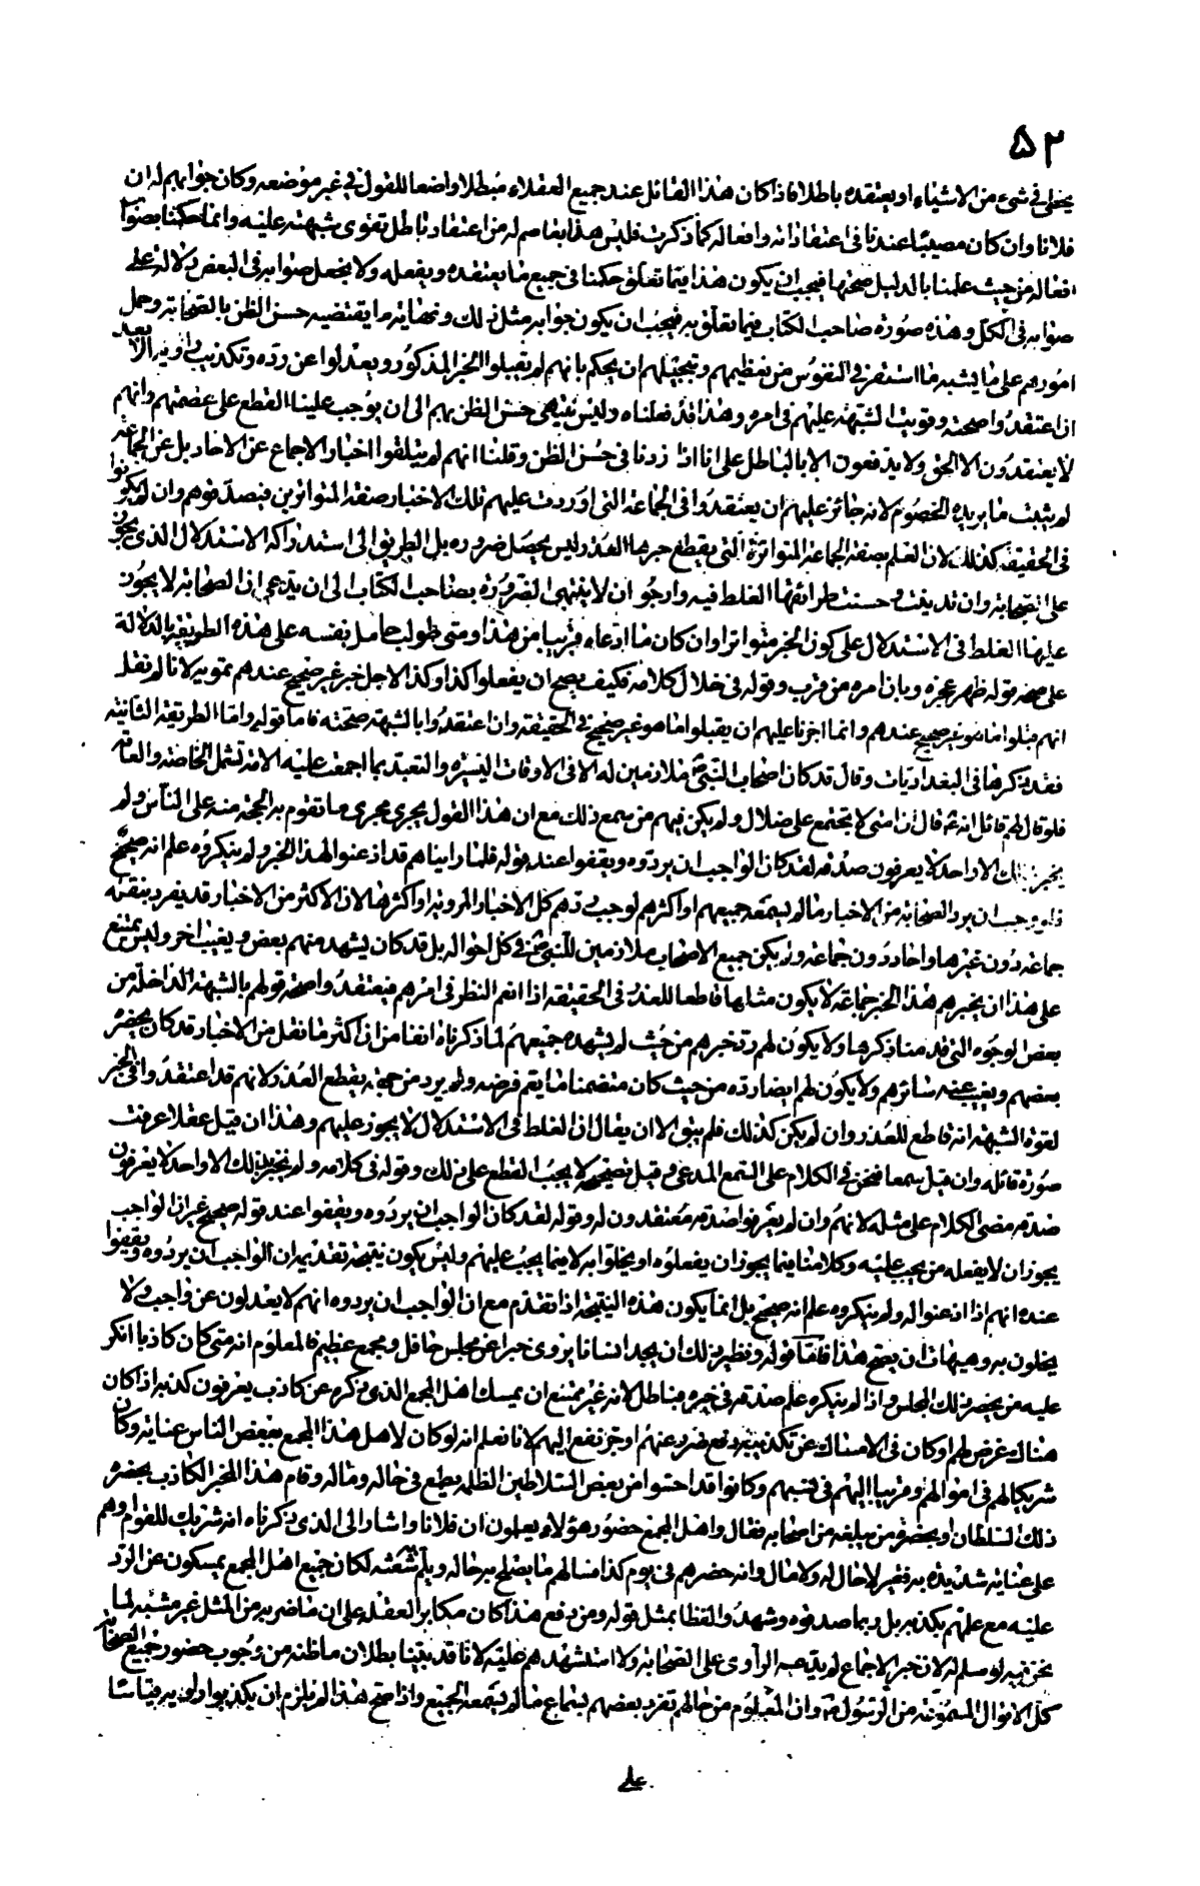 ٥٢
يخطئ في شيء من الاشياء او يعتقده باطلا فاذا كان هذا القائل عند جميع العقلاء مبطلا واضعا للقول في غير موضعه وكان جوابهم له ان
فلانا وان كان مصيبا عندنا في اعتقاداته وافعاله كما ذكرت فليس هذا بعاصم له من اعتقاد باطل تقوى شبهته عليه وانما حكمنا بصواب
افعاله من حيث علمنا بالدليل صحتها فيجب ان يكون هذا فيما تعلق حكمنا في جميع ما يعتقده ويفعله ولا يجعل صوابه في البعض دلالة على
صوابه في الكل وهذه صورة صاحب الكتاب فيما تعلق به فيجب ان يكون جوابه مثل ذلك ونهاية ما يقتضيه حسن الظن بالصحابة وحمل
امورهم على ما يشبه ما استقر في النفوس من تعظيمهم وتبجيلهم ان يحكم بانهم لم يقبلوا الخبر المذكور ويعدلوا عن رده وتكذيب راويه الا بعد
ان اعتقدوا صحته وقويت الشبهة عليهم في امره وهذا قد فعلناه وليس ينتهي حسن الظن بهم الى ان يوجب علينا القطع على عصمتهم وانهم
لا يعتقدون الا الحق ولا يدفعون الا بالباطل على انا اذا زدنا في حسن الظن وقلنا انهم لم يتلقوا اخبار الاجماع عن الاحاد بل عن الجماعة
لم يثبت ما يريده الخصوم لانه جائز عليهم ان يعتقدوا في الجماعة التي اوردت عليهم تلك الاخبار صفة المتواترين فيصدقوهم وان لم يكونوا
في الحقيقة كذلك لان العلم بصفة الجماعة المتواترة التي يقطع خبرها العذر ليس يحصل ضرورة بل الطريق الى استدراكه الاستدلال الذي يجوز
على الصحابة وان تدينت وحسنت طرائقها الغلط فيه وارجو ان لا ينتهي الضرورة بصاحب الكتاب الى ان يدعي ان الصحابة لا يجوز
عليها الغلط في الاستدلال على كون الخبر متواترا وان كان ما ادعاه قريبا من هذا ومتى طولب حامل نفسه على هذه الطريقة بالدلالة
على صحة قوله ظهر عجزه وبان امره من قرب وقوله في خلال كلامه فكيف يصح ان يفعلوا كذا وكذا لاجل خبر غير صحيح عندهم تمويه لانا لم نقل
انهم قبلوا ما هو غير صحيح عندهم وانما اجزنا عليهم ان يقبلوا ما هو غير صحيح في الحقيقة وان اعتقدوا بالشبهة صحته فاما قوله واما الطريقة الثانية
فقد ذكرها في البغداديات وقال قد كان اصحاب النبي ملازمين له الا في الاوقات اليسيرة والتعبد بما اجمعت عليه الامة تشمل الخاصة والعامة
فلو قال لهم قائل انه قال ان امتي لا تجتمع على ضلال ولم يكن فيهم من سمع ذلك مع ان هذا القول يجري مجرى ما تقوم به الحجة منه على الناس ولم
يخبر بذلك الا واحد لا يعرفون صدقه لقد كان الواجب ان يردوه ويقفوا عند قوله فلما راينا هم قد اذعنوا لهذا الخبر ولم ينكروه علم انه صحيح
ولو وجب ان يرد الصحابة من الاخبار ما لم يسمعه جميعهم او اكثرهم لوجب ردهم كل الاخبار المروية او اكثرها لان الاكثر من الاخبار قد ينفرد بنقله
جماعة دون غيرها واحاد دون جماعة ولم يكن جميع الاصحاب ملازمين للنبي في كل احواله بل قد كان يشهد منهم بعض ويغيب اخر وليس يمتنع
على هذا ان يخبرهم بهذا الخبر جماعة لا يكون مثلها قاطعا للعذر في الحقيقة اذا انعم النظر في امرهم فيعتقدوا صحة قولهم بالشبهة الداخلة من
بعض الوجوه التي قدمنا ذكرها ولا يكون لهم رد خبرهم من حيث لم يشهده جميعهم لما ذكرناه انفا من ان اكثر ما نقل من الاخبار قد كان يحضره
بعضهم ويغيب عنه سائرهم ولا يكون لهم ايضا رده من حيث كان متضمنا ما يعم فرضه ولم يرد من جهة يقطع العذر لانهم قد اعتقدوا في الخبر
لقوة الشبهة انه قاطع للعذر وان لم يكن كذلك فلم يبق الا ان يقال ان الغلط في الاستدلال لا يجوز عليهم وهذا ان قيل عقلا عرفت
صورة قائله وان قيل سمعا فنحن في الكلام على السمع المدعى وقبل تصحيحه لا يجب القطع على ذلك وقوله في كلامه ولم يخبر بذلك الا واحد لا يعرفون
صدقه مضى الكلام على مثله لانهم وان لم يعرفوا صدقه معتقدون له وقوله لقد كان الواجب ان يردوه ويقفوا عند قوله صحيح غير ان الواجب
يجوز ان لا يفعله من يجب عليه وكلامنا فيما يجوز ان يفعلوه او يخلوا به لا فيما يجب عليهم وليس يكون نتيجة تقديمه ان الواجب ان يردوه ويقفوا
عنده انهم اذا اذعنوا له ولم ينكروه علم انه صحيح بل انما يكون هذه النتيجة اذا تقدم مع ان الواجب ان يردوه انهم لا يعدلون عن واجب ولا
يخلون به وهيهات ان يصح هذا فاما قوله ونظير ذلك ان يجد انسانا يروي خبرا عن مجلس حافل ومجمع عظيم فالمعلوم انه متى كان كاذبا انكر
عليه من يحضر ذلك المجلس واذا لم ينكره علم صدقه في خبره فباطل لانه غير ممتنع ان يمسك اهل المجمع الذي ذكره عن كاذب يعرفون كذبه اذا كان
هناك غرض لهم او كان في الامساك عن تكذيبه دفع ضرر عنهم او جر نفع اليهم لانا نعلم انه لو كان لاهل هذا المجمع ببعض الناس عناية وكان
شريكا لهم في اموالهم وقريبا اليهم في نسبهم وكانوا قد احسوا من بعض السلاطين الظلمة بطمع في حاله وماله وقام هذا المخبر الكاذب بحضرة
ذلك السلطان او بحضرة من يبلغه من اصحابه فقال واهل المجمع حضور هؤلاء يعلمون ان فلانا واشار الى الذي ذكرناه انه شريك للقوم وهم
على عناية شديدة به فقير لا حال له ولا مال وانه حضرهم في يوم كذا فسالهم ما يصلح به حاله ويلم شعثه لكان جميع اهل المجمع يمسكون عن الرد
عليه مع علمهم بكذبه بل ربما صدقوه وشهدوا لفظا بمثل قوله ومن دفع هذا كان مكابر العقله على ان ما ضربه من المثل غير مشبه لما
نحن فيه لو سلم له لان خبر الاجماع لم يدعه الراوي على الصحابة ولا استشهدهم عليه لانا قد بينا بطلان ما ظنه من وجوب حضور جميع الصحابة
كل الاقوال المسموعة من الرسول وان المعلوم من حالهم تفرد بعضهم بسماع ما لم يسمعه الجميع واذا صح هذا لم يلزم ان يكذبوا راويه قياسا
على